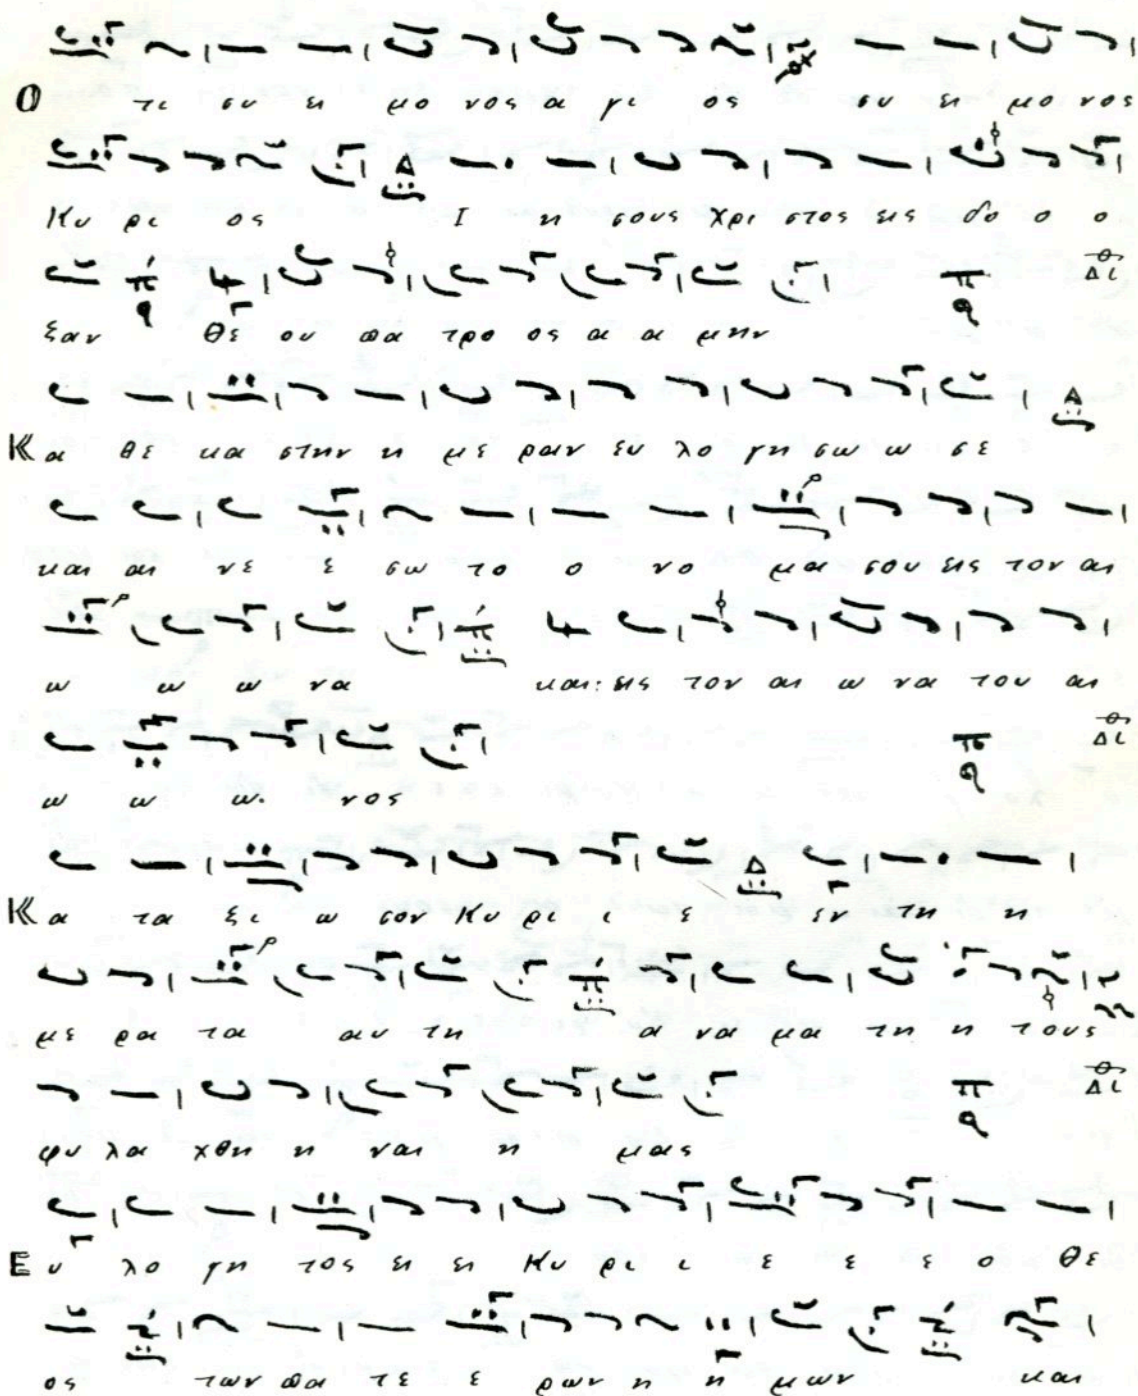 Ο τι συ ει μο νος α γι ος συ ει μο νος
Κυ ρι ος Ι η σους χρι στος εις δο ο ο
ξαν Θε ου πα τρο ος α α μην
Κα θε κα στην η με ραν ευ λο γη σω ω σε
και αι νε ε σω το ο νο μα σου εις τον αι
ω ω ω να και: εις τον αι ω να του αι
ω ω ω. νος
Κα τα ξι ω σον Κυ ρι ι ε εν τη η
με ρα τα αυ τη α να μα τη η τους
φυ λα χθη η ναι η μας
Ευ λο γη τος ει ει Κυ ρι ι ε ε ε ο Θε
ος των πα τε ε ρων η η μων και